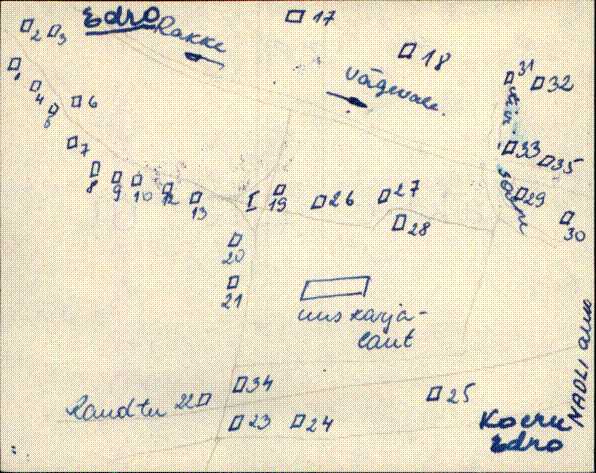 Edro
Rakke
17
18
2 3
1
4
6
6
7
8 9 10 12 13
I
19
26
27
28
20
21
Vägevale.
31
32
33
35
29
30
uus karja-
laut
Raudtu 22
34
23
24
25
Koeru
Edro